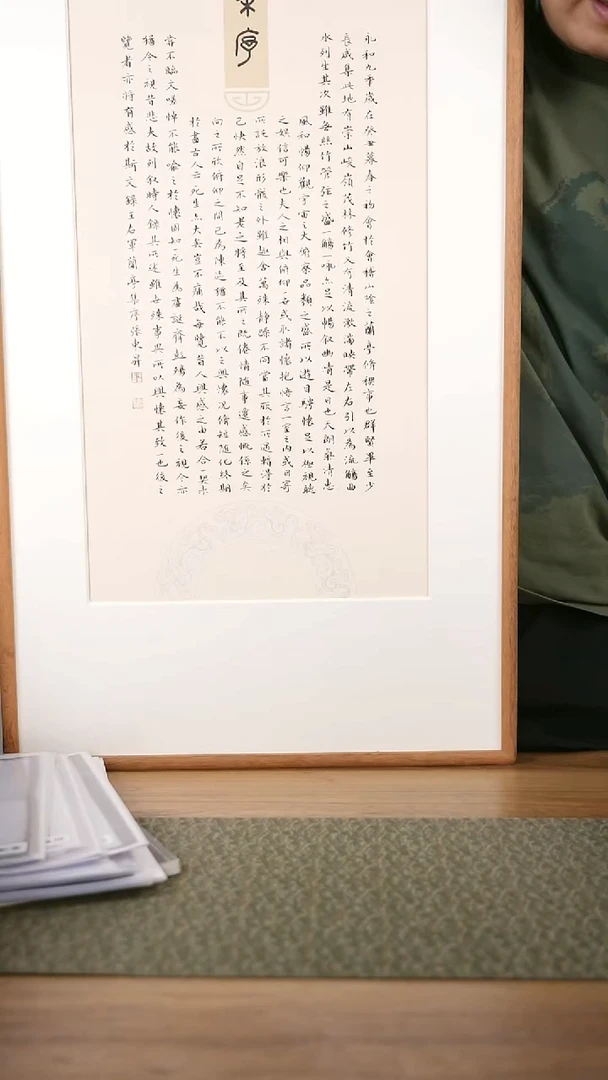 序
永和九年歲在癸丑暮春之初會於會稽山陰之蘭亭脩禊事也群賢畢至少
長咸集此地有崇山峻嶺茂林修竹又有清流激湍映帶左右引以為流觴曲
水列坐其次雖無絲竹管弦之盛一觴一詠亦足以暢敘幽情是日也天朗氣清惠
風和暢仰觀宇宙之大俯察品類之盛所以遊目騁懷足以極視聽
之娛信可樂也夫人之相與俯仰一世或取諸懷抱悟言一室之內或因寄
所託放浪形骸之外雖趣舍萬殊靜躁不同當其欣於所遇暫得於
己快然自足不知老之將至及其所之既倦情隨事遷感慨係之矣
向之所欣俯仰之間已為陳迹猶不能不以之興懷況脩短隨化終期
於盡古人云死生亦大矣豈不痛哉每覽昔人興感之由若合一契未
嘗不臨文嗟悼不能喻之於懷固知一死生為虛誕齊彭殤為妄作後之視今亦
猶今之視昔悲夫故列敘時人錄其所述雖世殊事異所以興懷其致一也後之
覽者亦將有感於斯文錄王右軍蘭亭集序張東